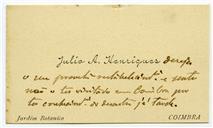 Julio A. Henriques deseja
o seu prompto restabelecimto. e sente
não o ter visitado em Coimbra por
ter conhecimto. do desastre já tarde.
Jardim Botanico COIMBRA